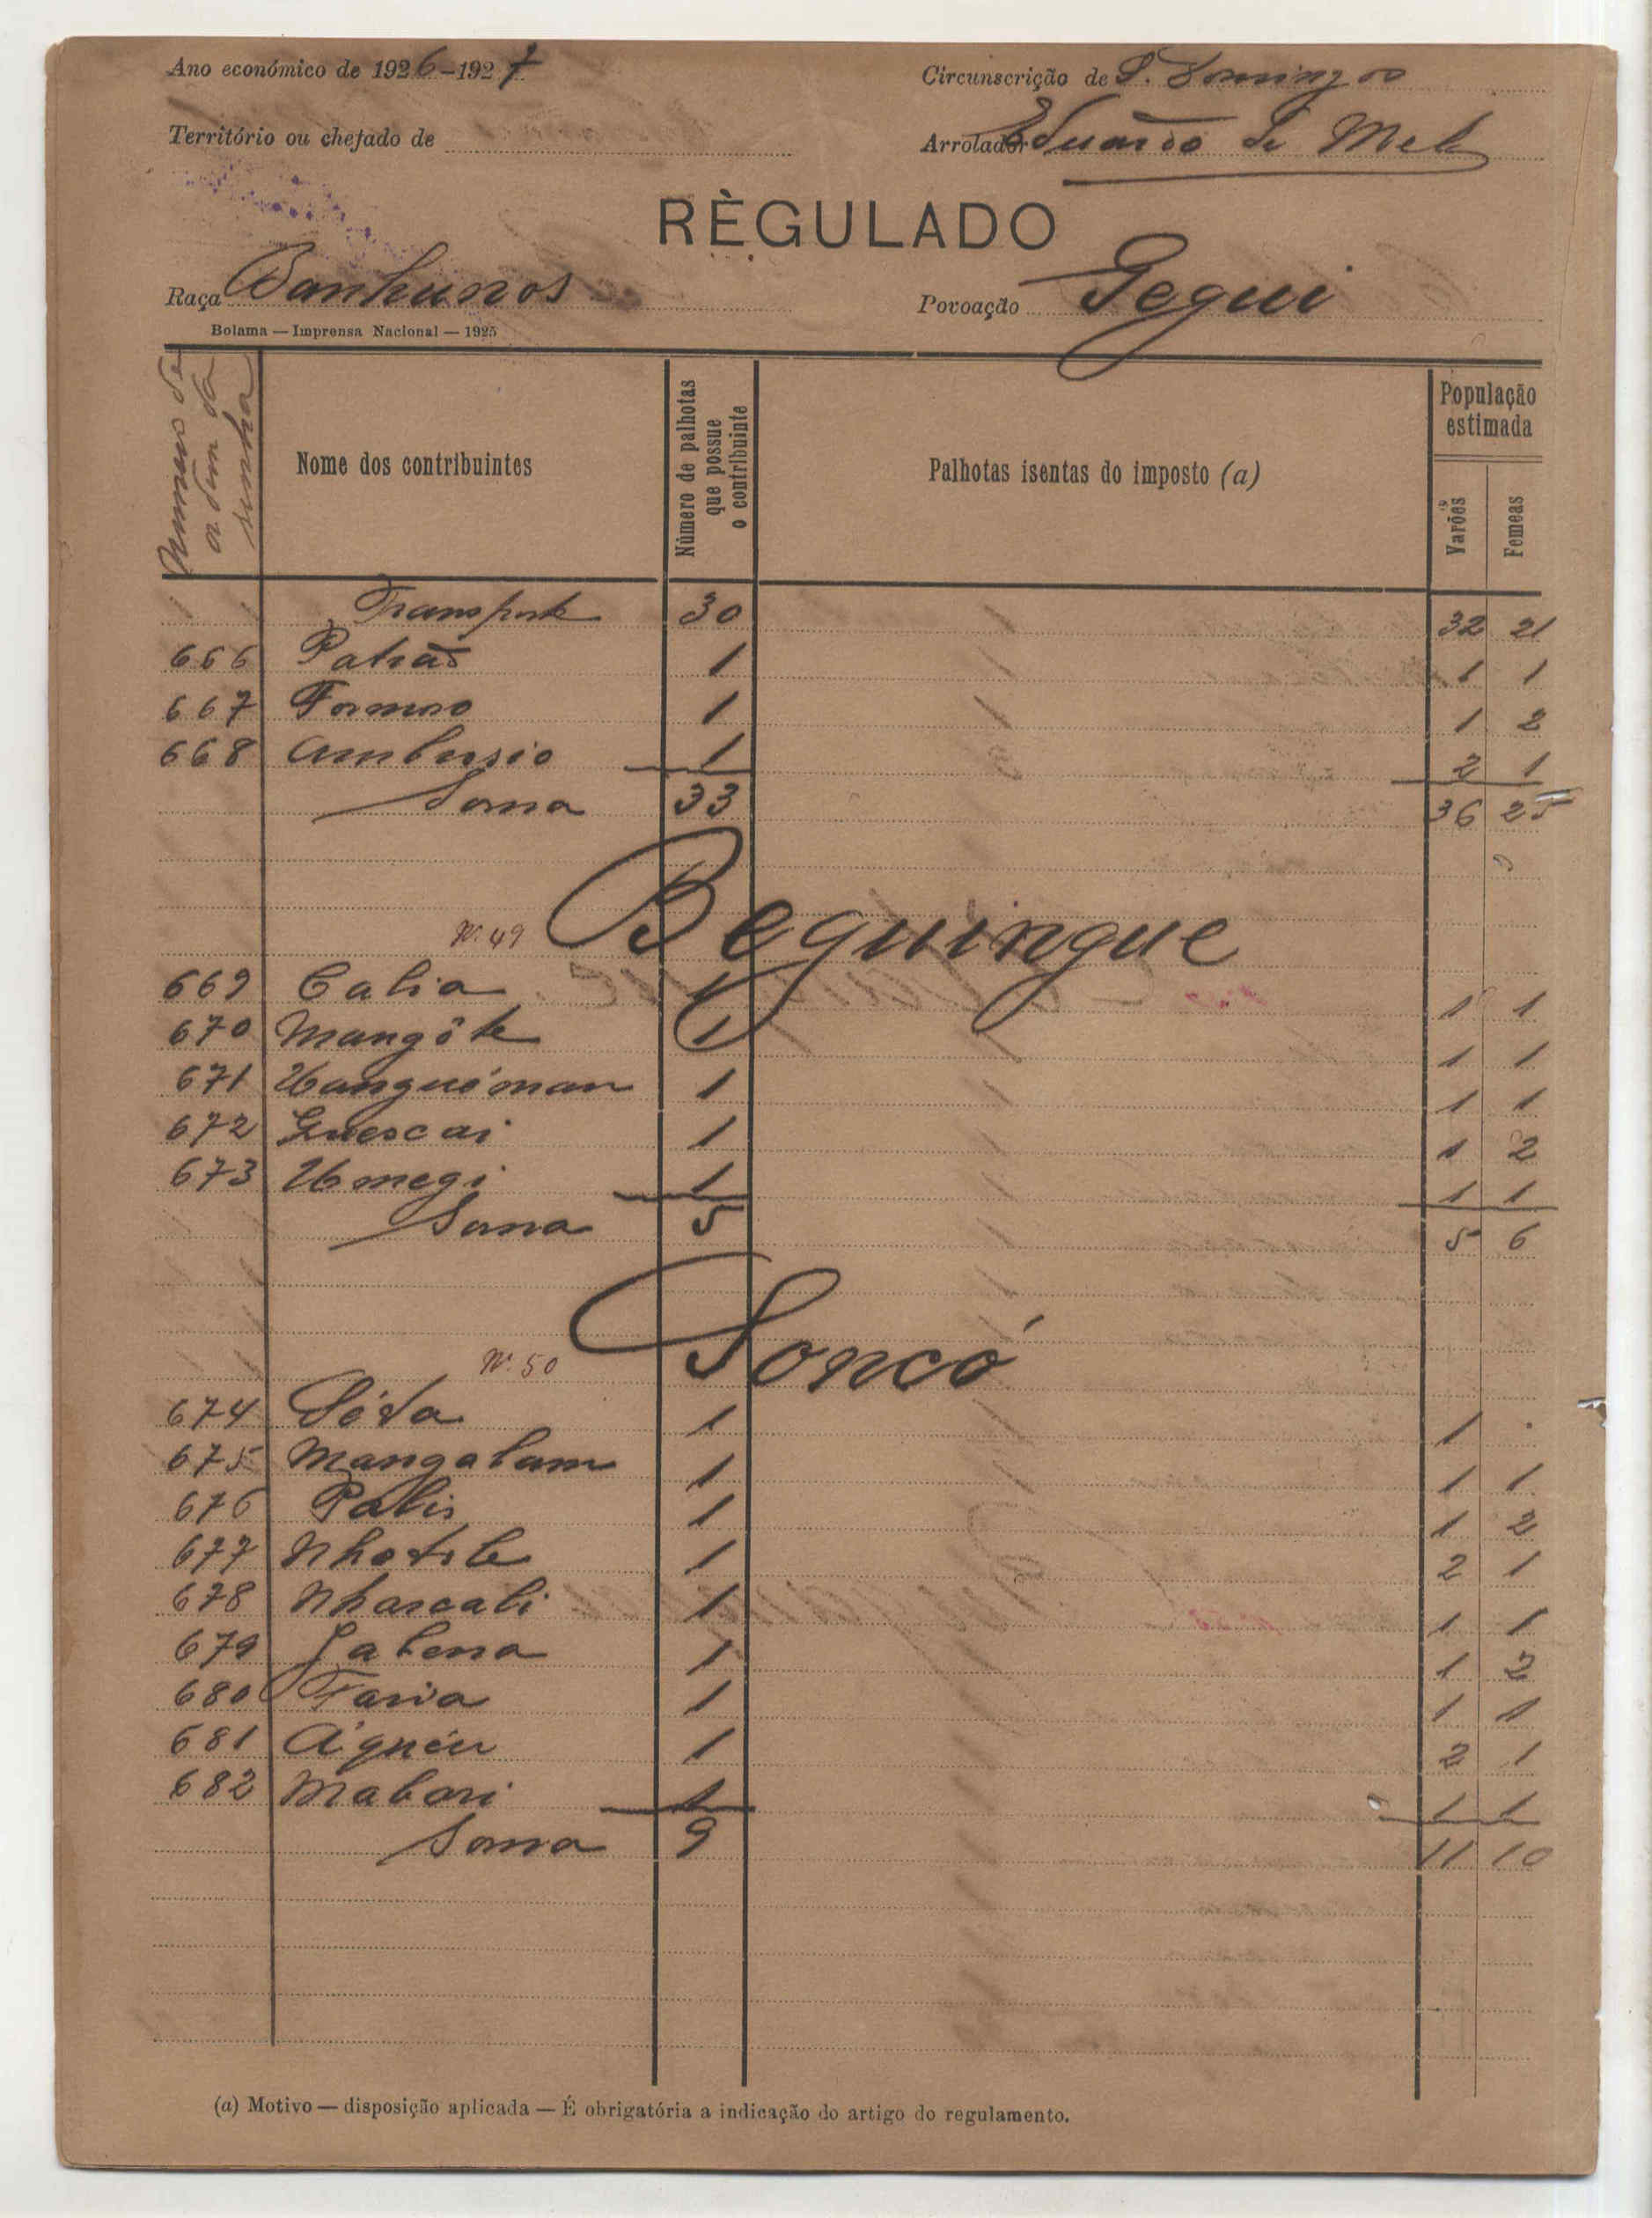 Ano económico de 1926-1927
Circunscrição de S. Domingos
Território ou chefado de
Arrolador Eduardo de Melo
RÈGULADO
Raça Banhunos
Povoação Gegui
Bolama — Imprensa Nacional — 1925
Numero de ordem da senha
Nome dos contribuintes
Número de palhotas que possue o contribuinte
Palhotas isentas do imposto (a)
População estimada
Varões
Femeas
Transporte 30 32 21
666 Patrão 1 1 1
667 Formoso 1 1 2
668 Ambrosio 1 2 1
Soma 33 36 25
Nº 49 Beguingue
669 Calia 1 1 1
670 Mangôte 1 1 1
671 1 1 1
672 Guescai 1 1 2
673 1 1 1
Soma 5 5 6
Nº 50 Soncó
674 1 1 .
675 Mangalam 1 1 1
676 Palis 1 1 2
677 1 2 1
678 Nhascali 1 1 1
679 Jalena 1 1 2
680 Faria 1 1 1
681 1 2 1
682 Malari 1 1 1
Soma 9 11 10
(a) Motivo — disposição aplicada — É obrigatória a indicação do artigo do regulamento.